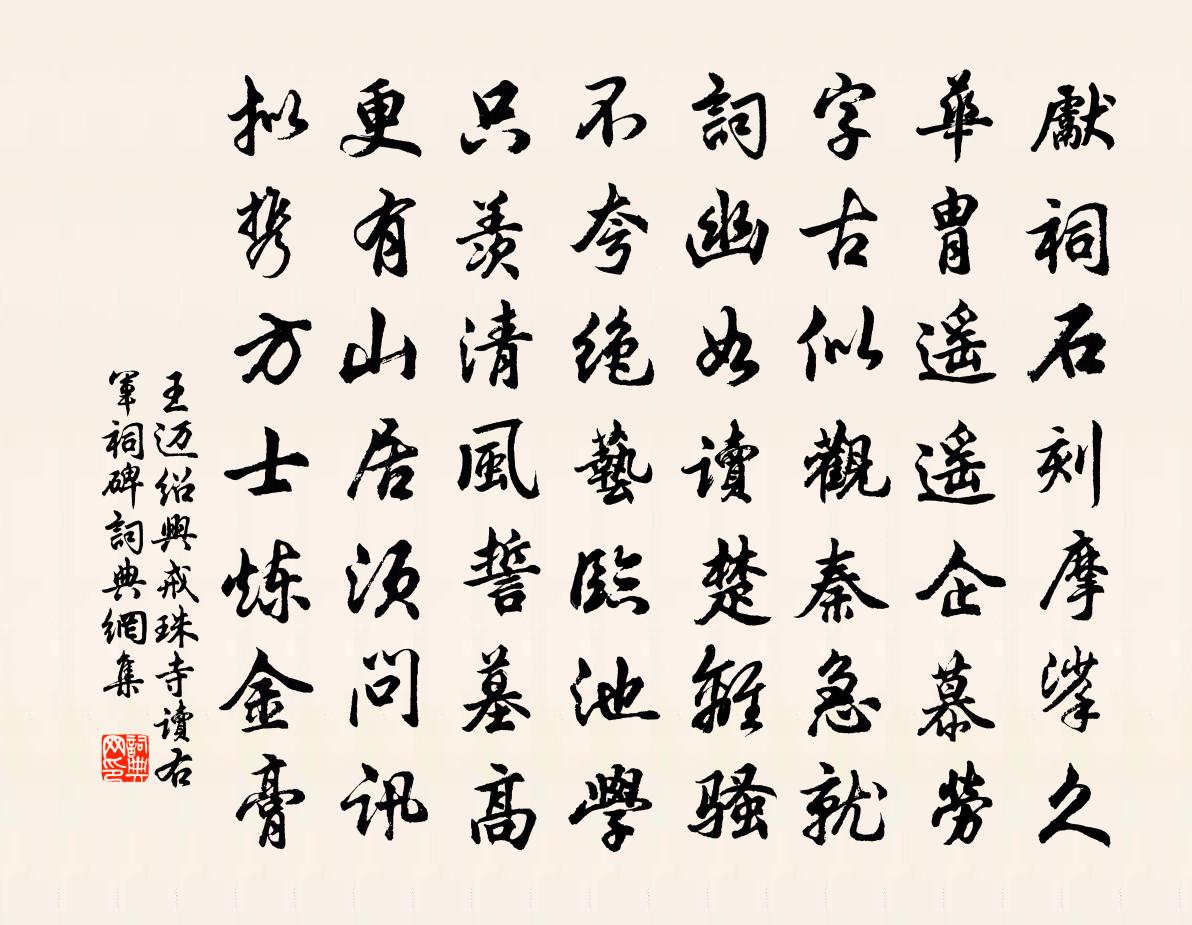 獻祠石刻摩挲久
華胄遥遥企慕勞
字古似觀秦急就
詞幽如讀楚離騷
不夸绝藝臨池學
只羨清風誓墓高
更有山居须問訊
拟携方士炼金膏
王迈绍興戒珠寺讀右
軍祠碑詞典網集
詞典
网印